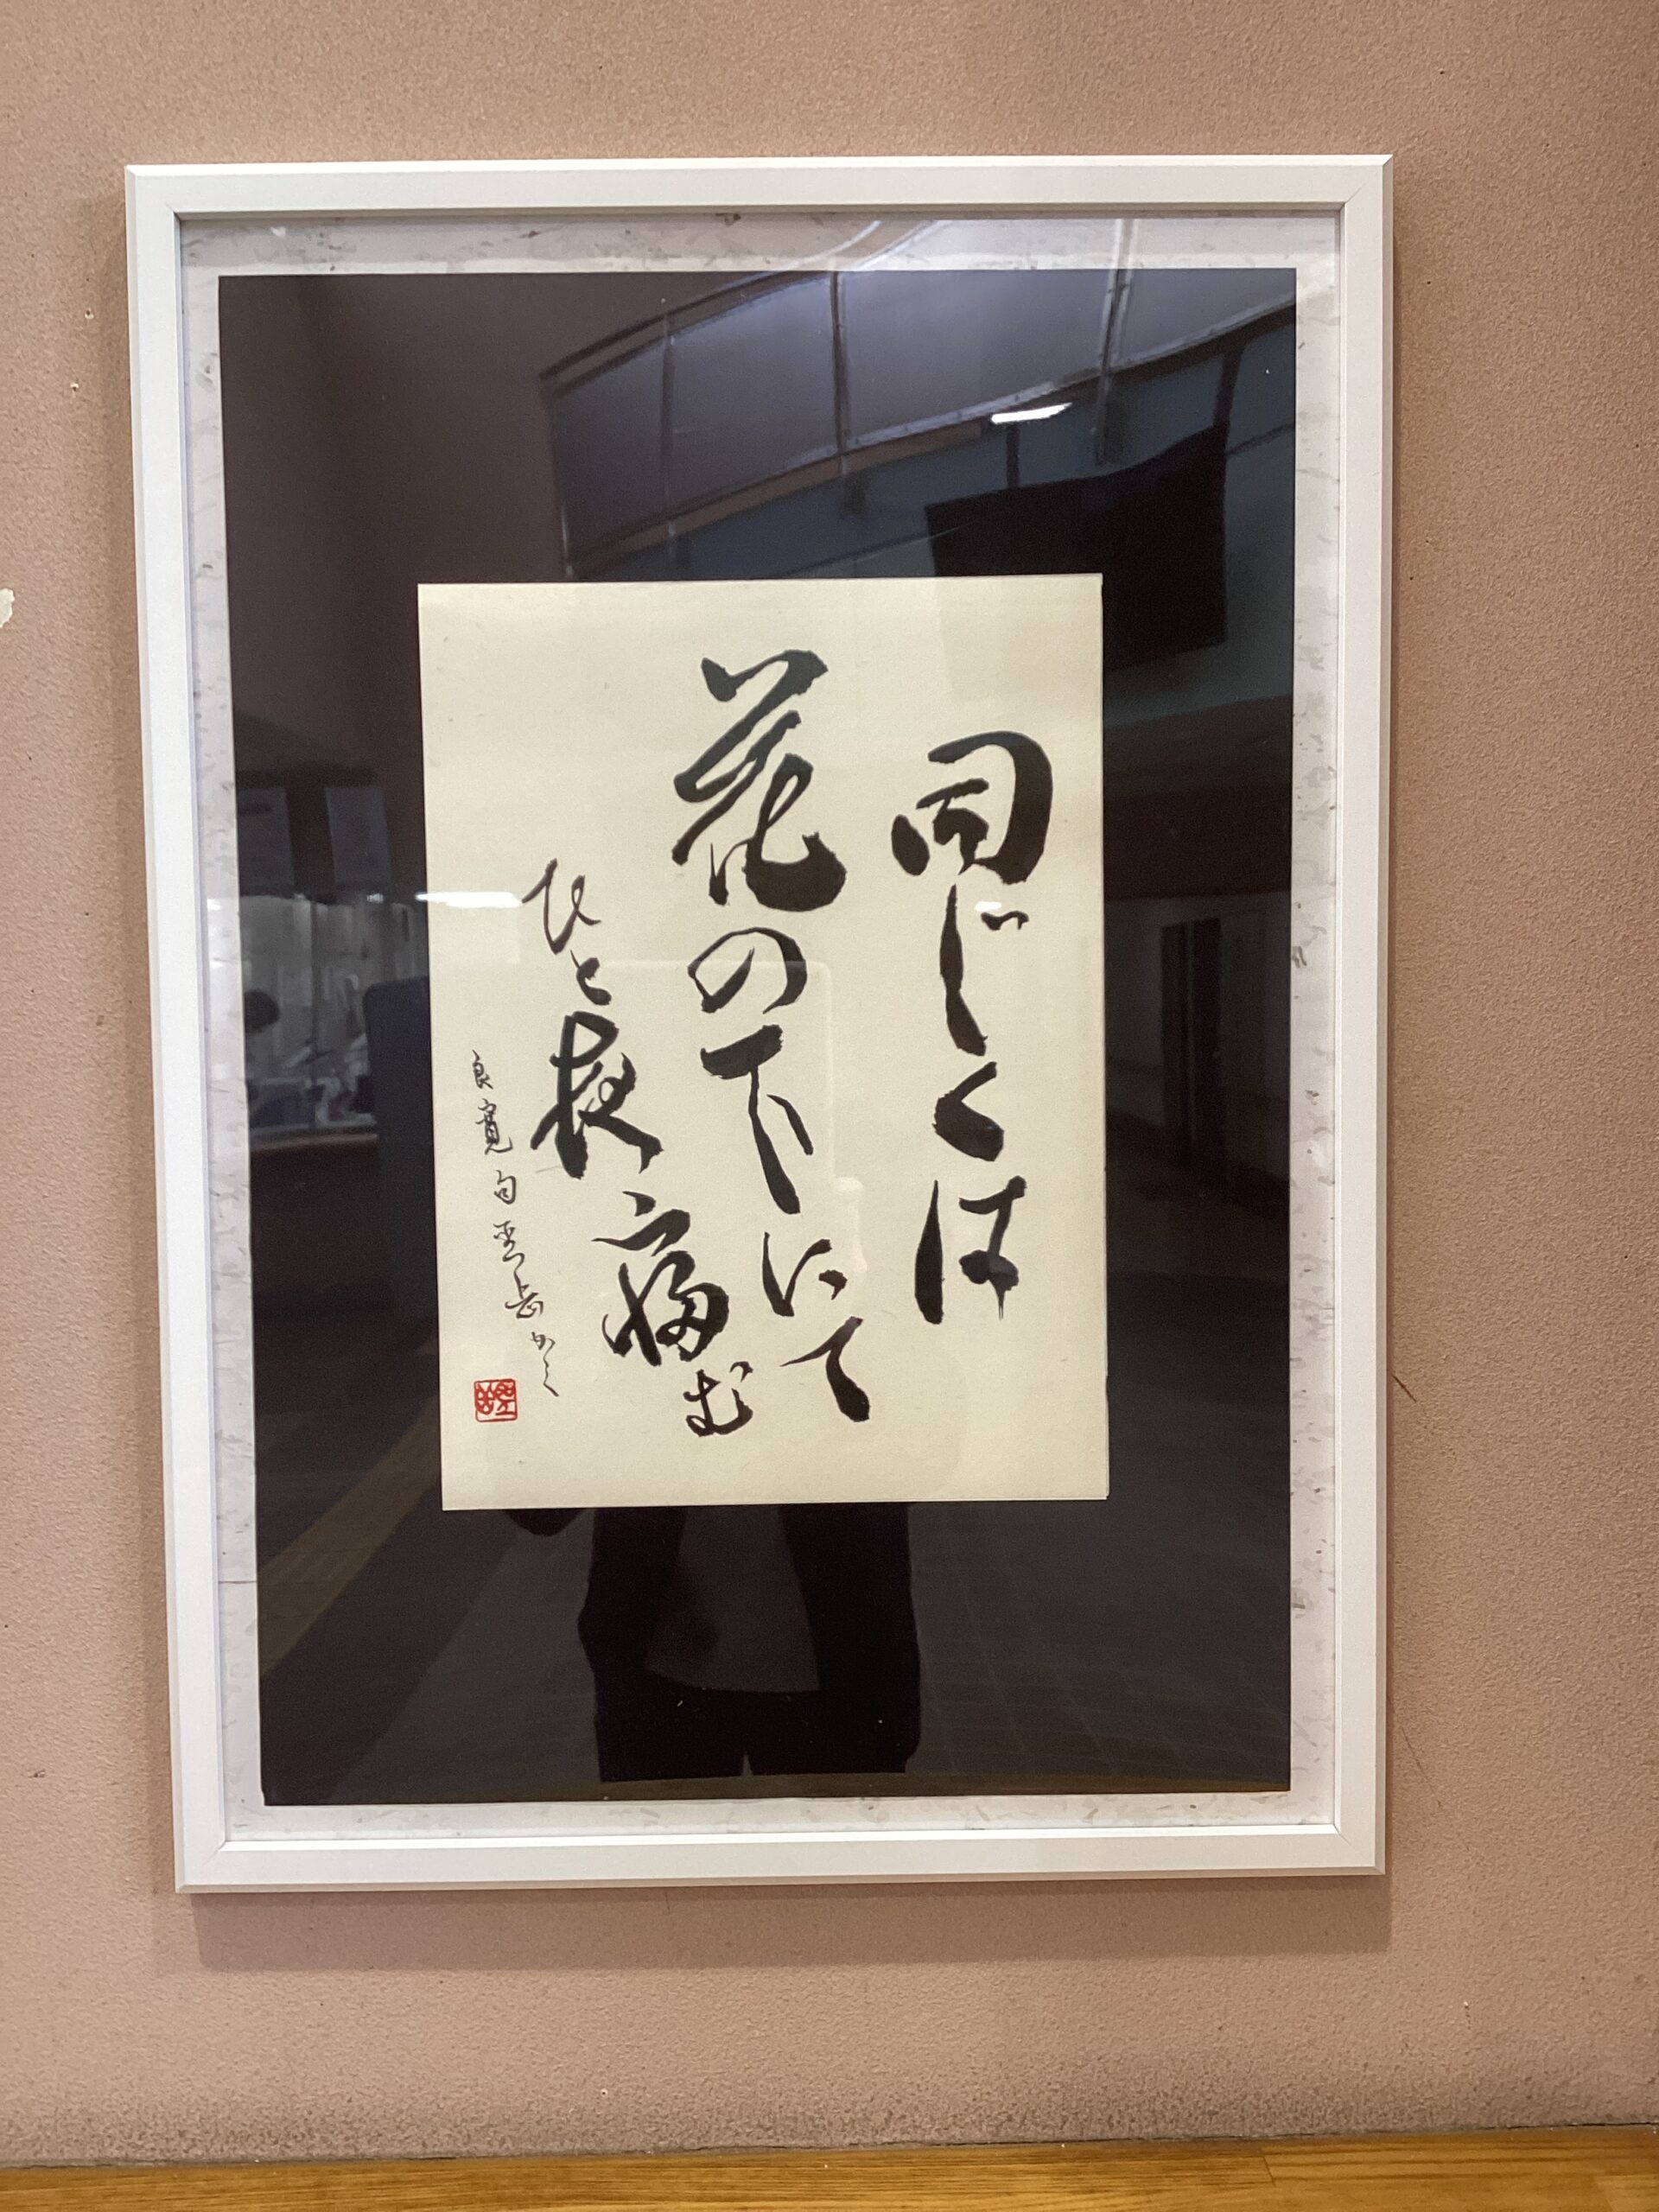 同じくは
花の下にて
ひと夜寝む
良寛句
かく